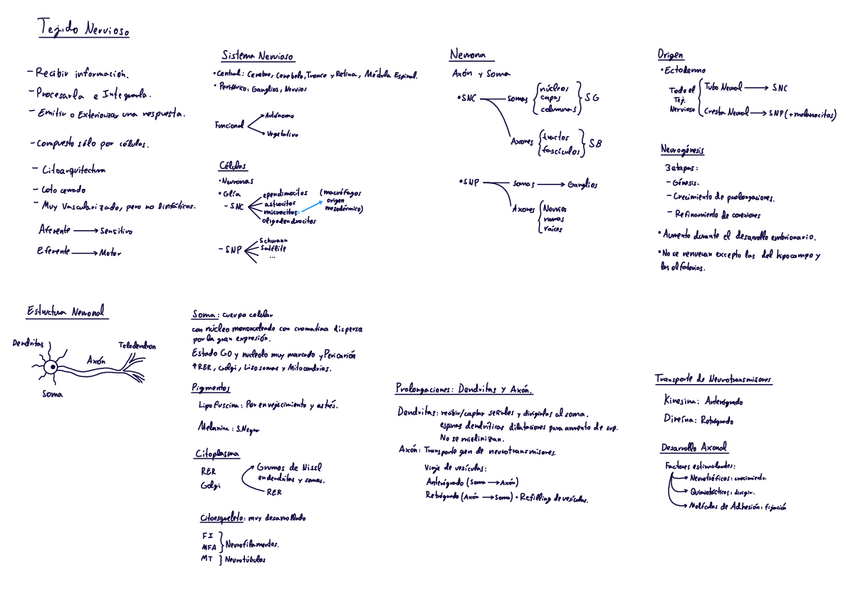 Tejido Nervioso
- Recibir información.
- Procesarla e Integrarla.
- Emitir o Exteriorizar una respuesta.
- Compuesto sólo por células.
- Citoarquitectura
- Coto cerrado
- Muy Vascularizado, pero no linfáticos.
Aferente → Sensitivo
Eferente → Motor
Sistema Nervioso
• Central: Cerebro, Cerebelo, Tronco y Retina, Médula Espinal.
• Periférico: Ganglios, Nervios
Funcional
Autónomo
Vegetativo
Células
• Neuronas
• Glía
- SNC
ependimocitos
astrocitos
microcitos
oligodendrocitos
(macrófagos
origen
mesodérmico)
- SNP
Schwann
Satélite
...
Neurona
Axón y Soma
• SNC
somas
núcleos
capas
columnas
SG
Axones
tractos
fascículos
SB
• SNP
somas → Ganglios
Axones
Nervios
ramos
raíces
Origen
• Ectodermo
Todo el
Tej.
Nervioso
Tubo Neural → SNC
Cresta Neural → SNP (+melanocitos)
Neurogénesis
3 etapas:
- Génesis.
- Crecimiento de prolongaciones.
- Refinamiento de conexiones
• Aumento durante el desarrollo embrionario.
• No se renuevan excepto las del hipocampo y
las olfatorias.
Estructura Neuronal
Dendritas
Axón
Telodendron
Soma
Soma: cuerpo celular
con núcleo monocelado con cromatina dispersa
por la gran expresión.
Estado G0 y nucleolo muy marcado y Pericarion
↑RER, Golgi, Lisosomas y Mitocondrias.
Pigmentos
Lipofuscina: Por envejecimiento y estrés.
Melanina: S.Negra
Citoplasma
RER
Golgi
Grumos de Nissl
en dendritas y somas.
RER
Citoesqueleto: muy desarrollado
FI
MFA
Neurofilamentos.
MT
Neurotúbulos
Prolongaciones: Dendritas y Axón.
Dendritas: recibir/captar señales y dirigirlas al soma.
espinas dendríticas dilataciones para aumento de sup.
No se mielinizan.
Axón: Transporte gen de neurotransmisores
Viaje de vesículas:
Anterógrado (Soma → Axón)
Retrógrado (Axón → Soma) • Refilling de vesículas.
Transporte de Neurotransmisores
Kinesina: Anterógrado
Dineína: Retrógrado
Desarrollo Axonal
Factores estimulantes:
Neurotróficos: crecimiento.
Quimiotácticos: dirigir.
Moléculas de Adhesión: fijación